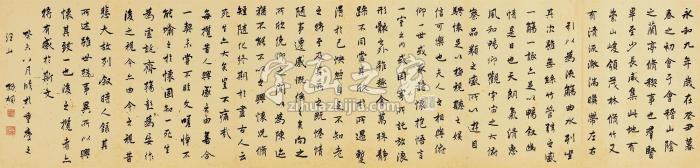 永和九年歲在癸丑暮
春之初會于會稽山陰
之蘭亭脩稧事也羣賢畢
至少長咸集此地有
崇山峻領茂林脩竹又
有清流激湍暎帶左右
引以為流觴曲水列坐
其次雖無絲竹管弦之盛
一觴一詠亦足以暢敘幽
情是日也天朗氣清惠
風和暢仰觀宇宙之大俯
察品類之盛所以遊目
騁懷足以極視聽之娛
信可樂也夫人之相與俯
仰一世或取諸懷抱悟言
一室之內或因寄所託放浪
形骸之外雖趣舍萬殊靜
躁不同當其欣於所遇暫
得於己怏然自足不知老
之將至及其所之既惓情
隨事遷感慨係之矣向之
所欣俛仰之間以為陳迹
猶不能不以之興懷況脩
短隨化終期於盡古人云
死生亦大矣豈不痛哉
每攬昔人興感之由若合
一契未嘗不臨文嗟悼不
能喻之於懷固知一死生
為虛誕齊彭殤為妄作
後之視今亦由今之視昔
悲夫故列敘時人錄其
所述雖世殊事異所以興
懷其致一也後之攬者亦
將有感於斯文
八月臨於重慶之
汪山
字画之家
zihuazhijia.com